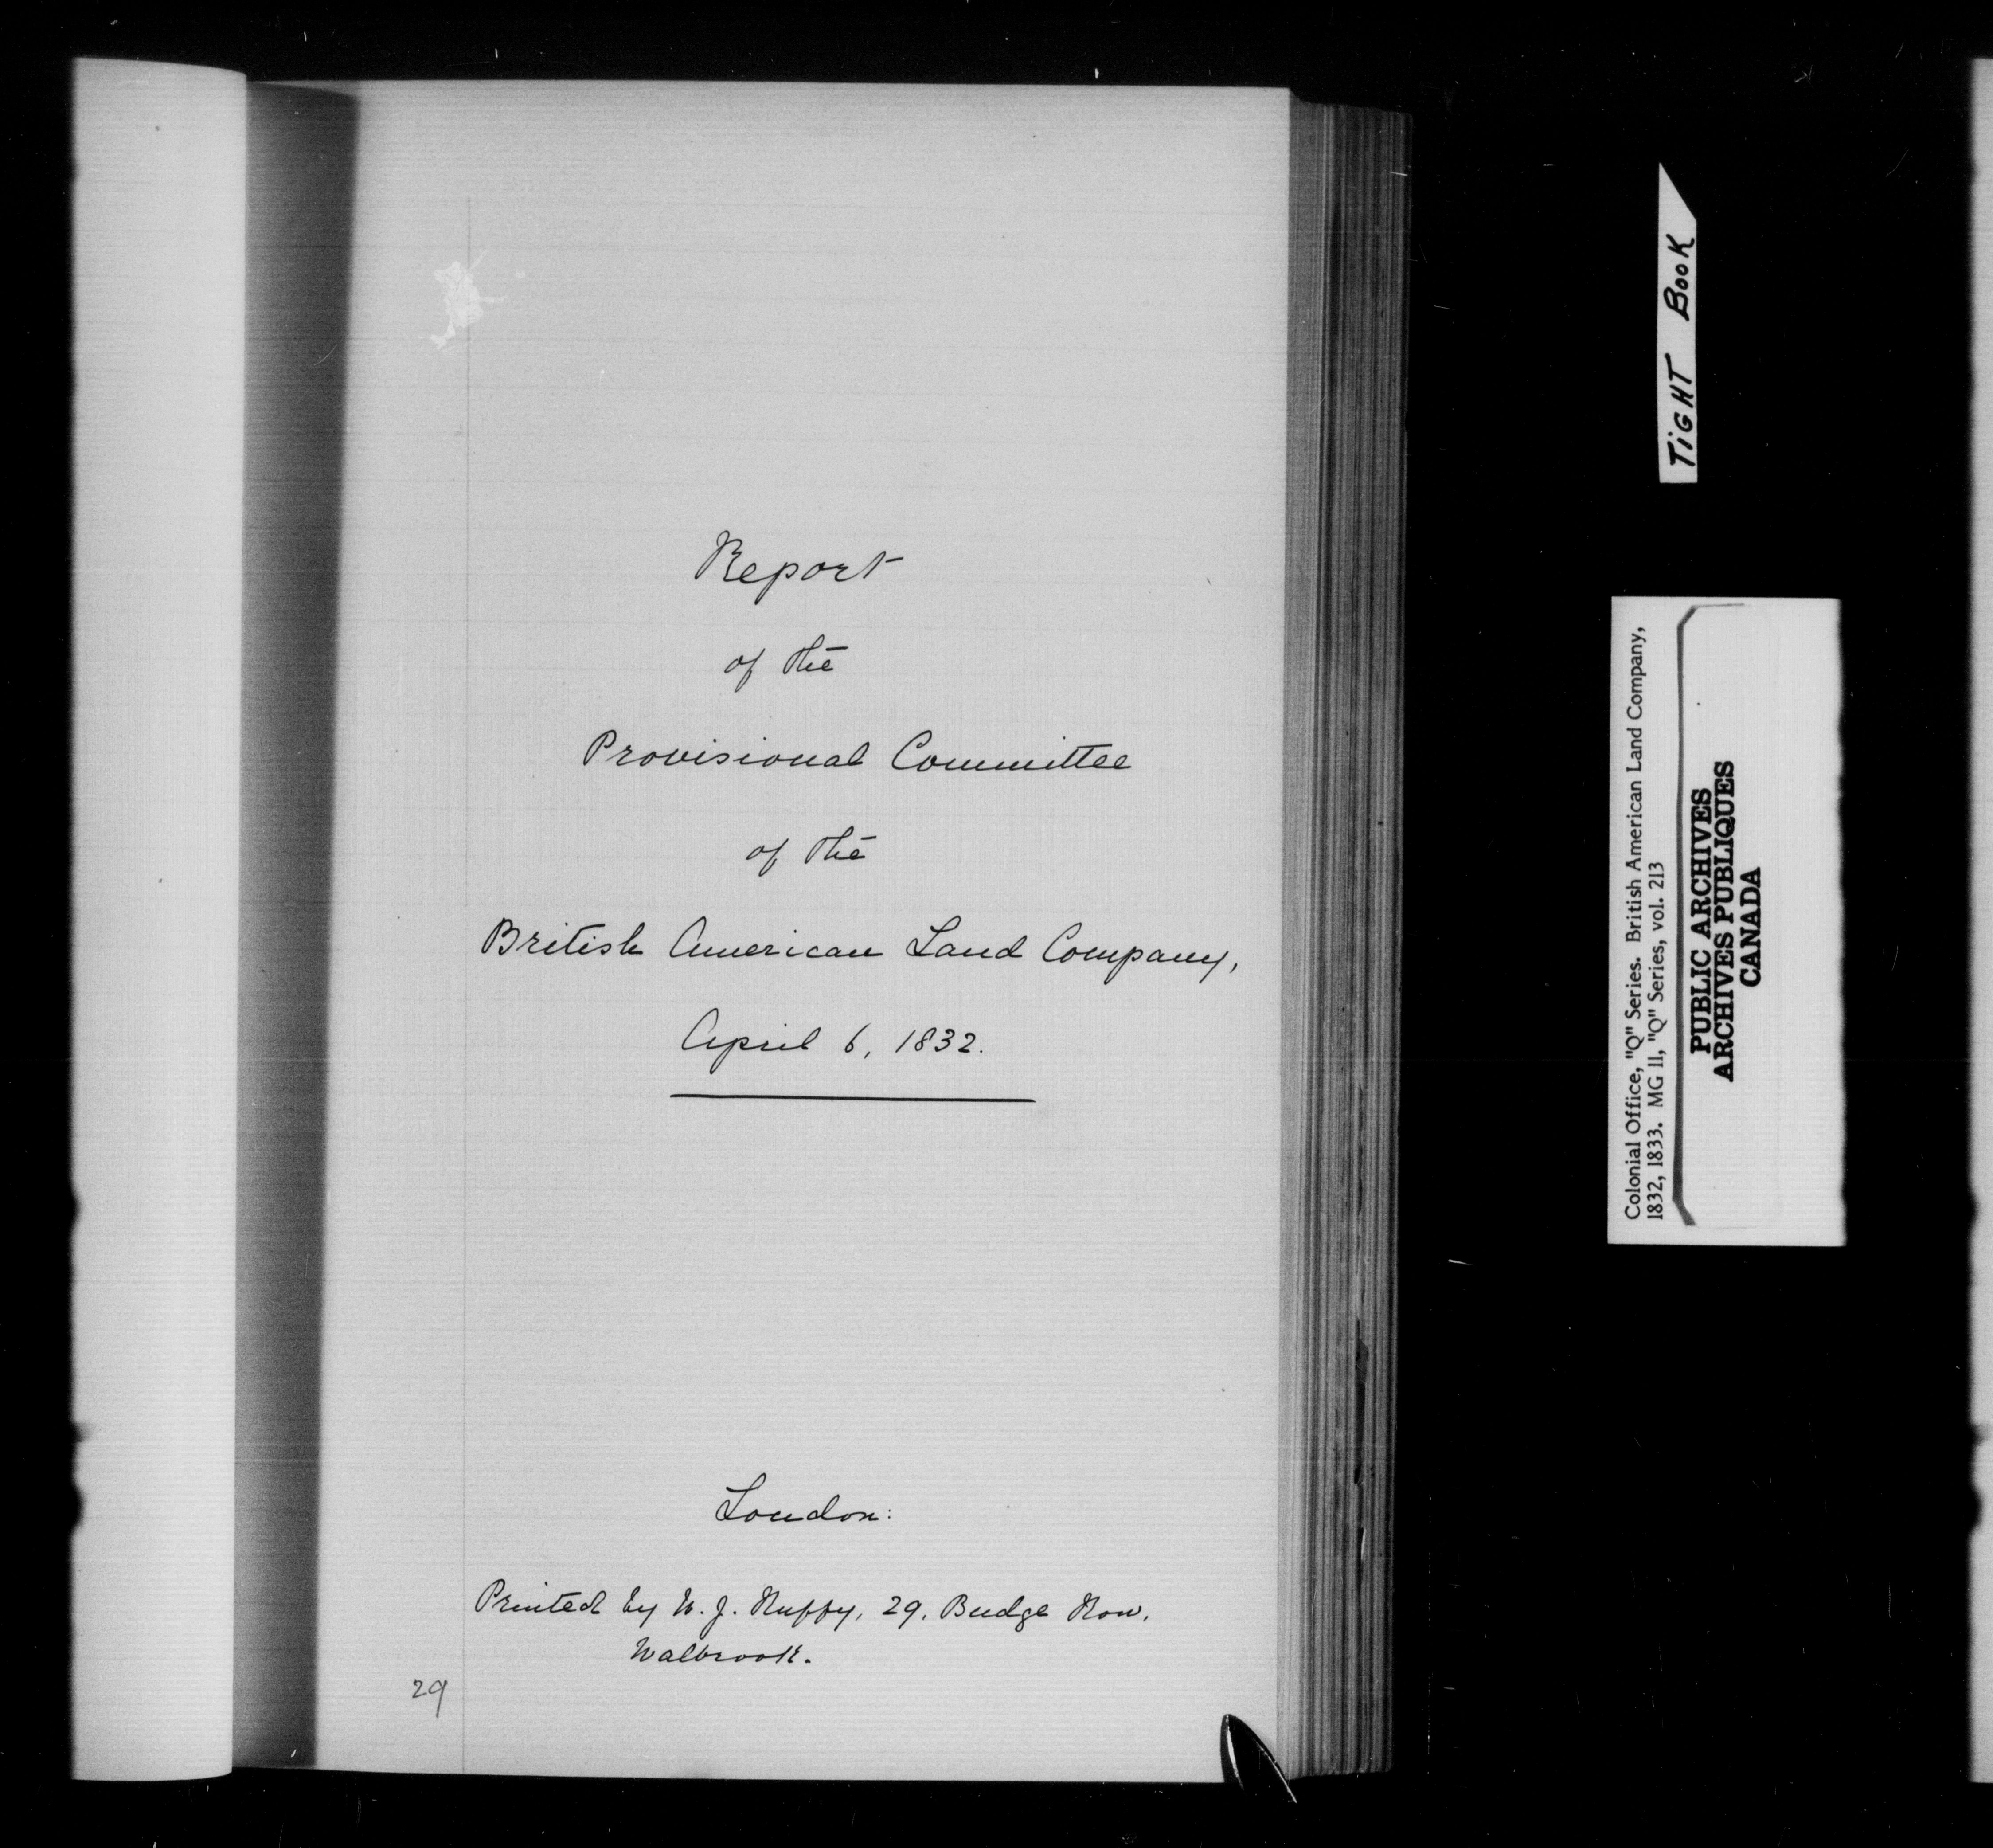 Report
of the
Provisional Committee
of the
British American Land Company,
April 6, 1832.
London:
Printed by W. J. Ruffy, 29, Budge Row,
Walbrook.
29
TIGHT BOOK
Colonial Office, "Q" Series. British American Land Company,
1832, 1833. MG 11, "Q" Series, vol. 213
PUBLIC ARCHIVES
ARCHIVES PUBLIQUES
CANADA